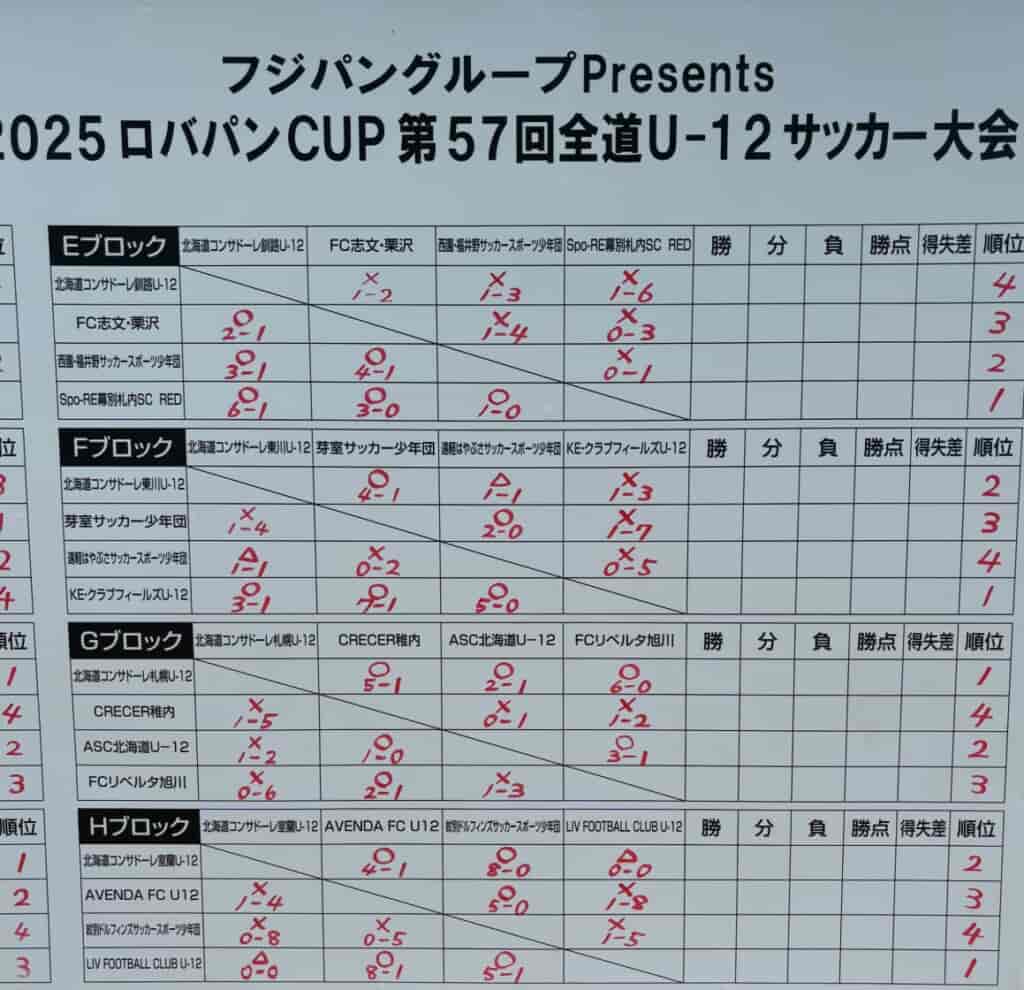 フジパングループPresents
2025ロバパンCUP 第57回全道U-12サッカー大会
Eブロック 北海道コンサドーレ釧路U-12 FC志文・栗沢 西園・福井野サッカースポーツ少年団 Spo-RE幕別札内SC RED 勝 分 負 勝点 得失差 順位
北海道コンサドーレ釧路U-12 × 1-2 × 1-3 × 1-6 4
FC志文・栗沢 ○ 2-1 × 1-4 × 0-3 3
西園・福井野サッカースポーツ少年団 ○ 3-1 ○ 4-1 × 0-1 2
Spo-RE幕別札内SC RED ○ 6-1 ○ 3-0 ○ 1-0 1
位 Fブロック 北海道コンサドーレ東川U-12 芽室サッカー少年団 遠軽はやぶさサッカースポーツ少年団 KE-クラブフィールズU-12 勝 分 負 勝点 得失差 順位
3 北海道コンサドーレ東川U-12 ○ 4-1 △ 1-1 × 1-3 2
1 芽室サッカー少年団 × 1-4 ○ 2-0 × 1-7 3
2 遠軽はやぶさサッカースポーツ少年団 △ 1-1 × 0-2 × 0-5 4
4 KE-クラブフィールズU-12 ○ 3-1 ○ 7-1 ○ 5-0 1
順位 Gブロック 北海道コンサドーレ札幌U-12 CRECER稚内 ASC北海道U-12 FCリベルタ旭川 勝 分 負 勝点 得失差 順位
1 北海道コンサドーレ札幌U-12 ○ 5-1 ○ 2-1 ○ 6-0 1
4 CRECER稚内 × 1-5 × 0-1 × 1-2 4
2 ASC北海道U-12 × 1-2 ○ 1-0 ○ 3-1 2
3 FCリベルタ旭川 × 0-6 ○ 2-1 × 1-3 3
順位 Hブロック 北海道コンサドーレ室蘭U-12 AVENDA FC U12 紋別ドルフィンズサッカースポーツ少年団 LIV FOOTBALL CLUB U-12 勝 分 負 勝点 得失差 順位
1 北海道コンサドーレ室蘭U-12 ○ 4-1 ○ 8-0 △ 0-0 2
2 AVENDA FC U12 × 1-4 ○ 5-0 × 1-8 3
4 紋別ドルフィンズサッカースポーツ少年団 × 0-8 × 0-5 × 1-5 4
3 LIV FOOTBALL CLUB U-12 △ 0-0 ○ 8-1 ○ 5-1 1